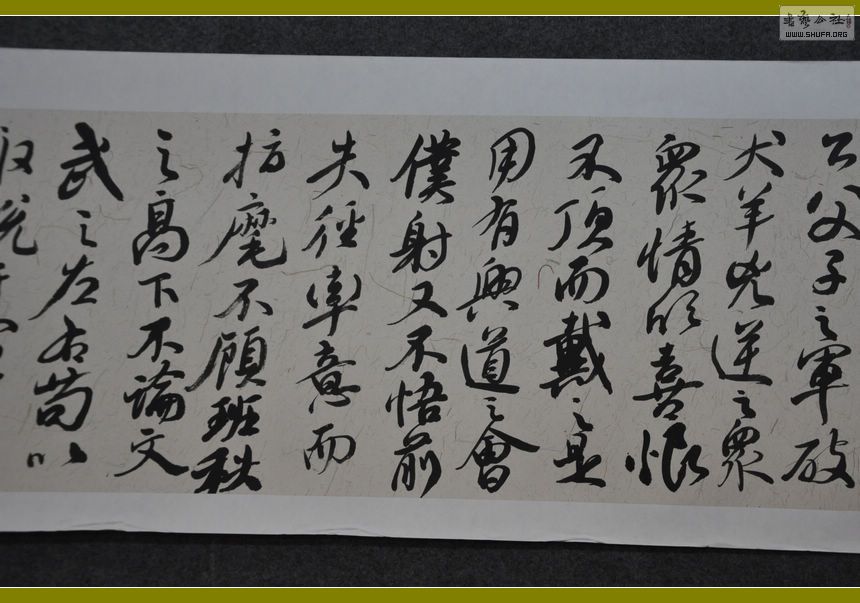 書藝公社
WWW.SHUFA.ORG
公父子之軍破
犬羊兇逆之眾
眾情欣喜恨
不頂而戴之是
用有興道之會
僕射又不悟前
失徑率意而
指麾不顧班秩
之高下不論文
武之左右苟以
取悅